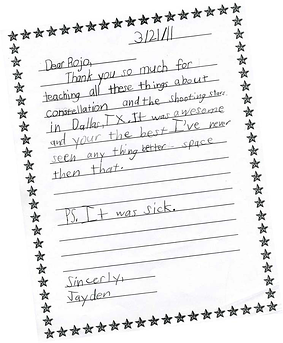 3/21/11
Dear Rojo,
Thank you so much for
teaching all these things about
constellation and the shooting stars
in Dallas, TX. It was awesome
and your the best I've never
seen any thing better space
then that.
PS. It was sick.
Sincerly,
Jayden